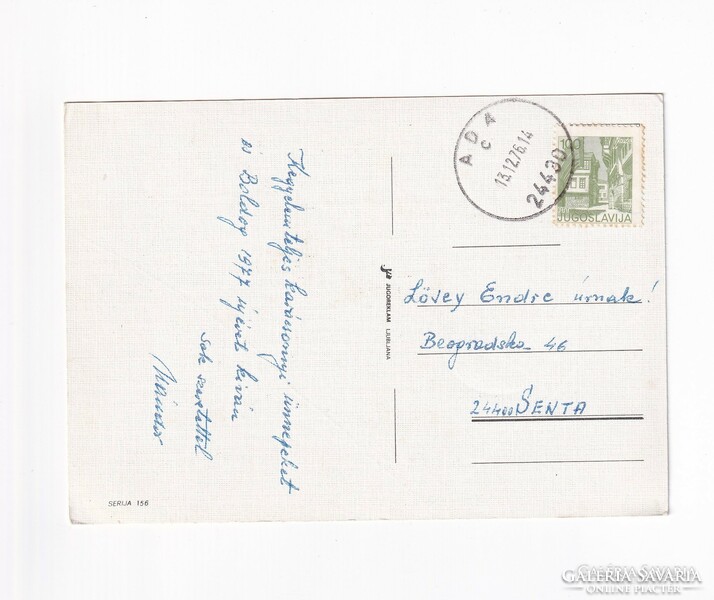 Kegyelemteljes karácsonyi ünnepeket
és Boldog 1977 új évet kíván
sok szeretettel
Nándor
SERIJA 156
JUGOREKLAM LJUBLJANA
ADA
C
13.12.76.14
24430
100
JUGOSLAVIJA
Lövey Endre úrnak!
Beogradska 46
24400 ŠENTA
GALÉRIA SAVARIA
ONLINE PIACTÉR